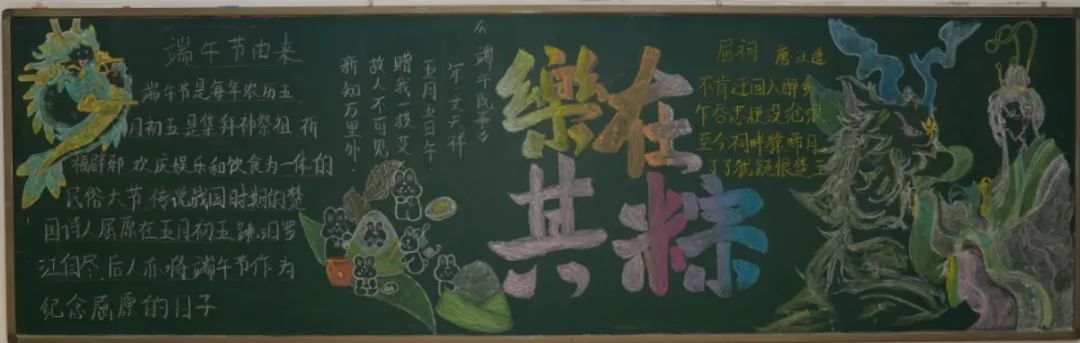 端午节由来
端午节是每年农历五
月初五是集拜神祭祖 祈
福辟邪 欢庆娱乐和饮食为一体的
民俗大节 传说战国时期的楚
国诗人屈原在五月初五跳汨罗
江自尽,后人亦将端午节作为
纪念屈原的日子
《端午既事》
宋·文天祥
五月五日午
赠我一枝艾
故人不可见
新知万里外
樂在
共粽
屈祠 唐汪遵
不肯迂回入醉乡
乍吞忠梗没沧浪
至今祠畔猿啼月
了了犹疑恨楚王